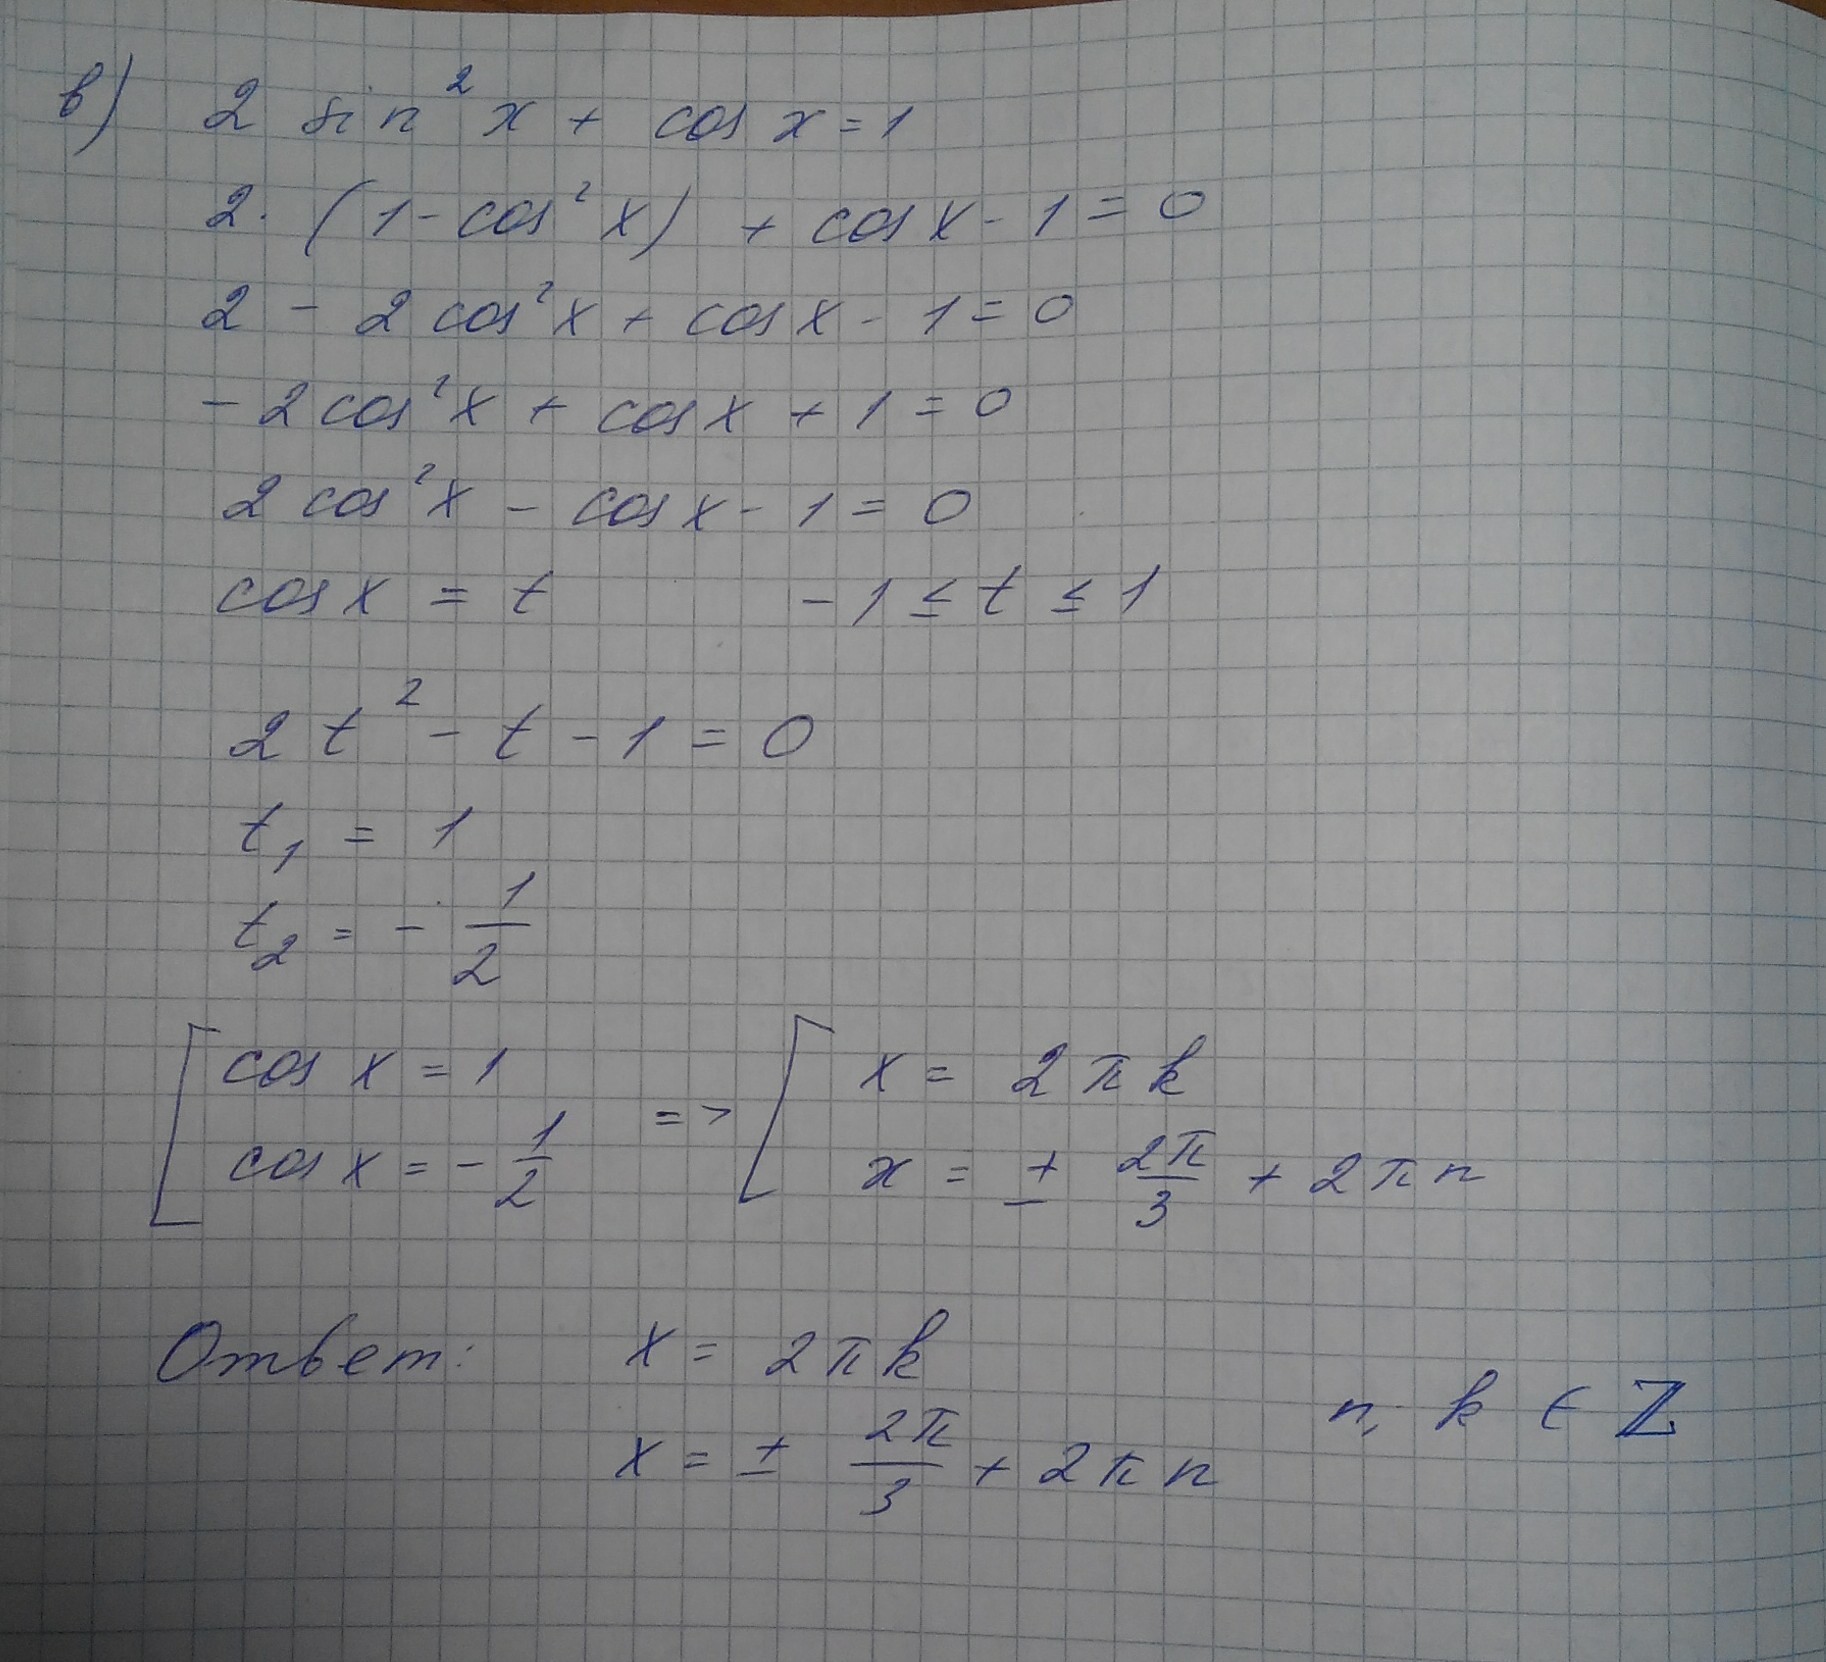 в) 2 sin² x + cos x = 1
2 · (1 - cos² x) + cos x - 1 = 0
2 - 2 cos² x + cos x - 1 = 0
- 2 cos² x + cos x + 1 = 0
2 cos² x - cos x - 1 = 0
cos x = t   -1 ≤ t ≤ 1
2 t² - t - 1 = 0
t₁ = 1
t₂ = - 1/2
[ cos x = 1 => [ x = 2πk
cos x = - 1/2   x = ± 2π/3 + 2πn
Ответ: x = 2πk
x = ± 2π/3 + 2πn   n, k ∈ ℤ